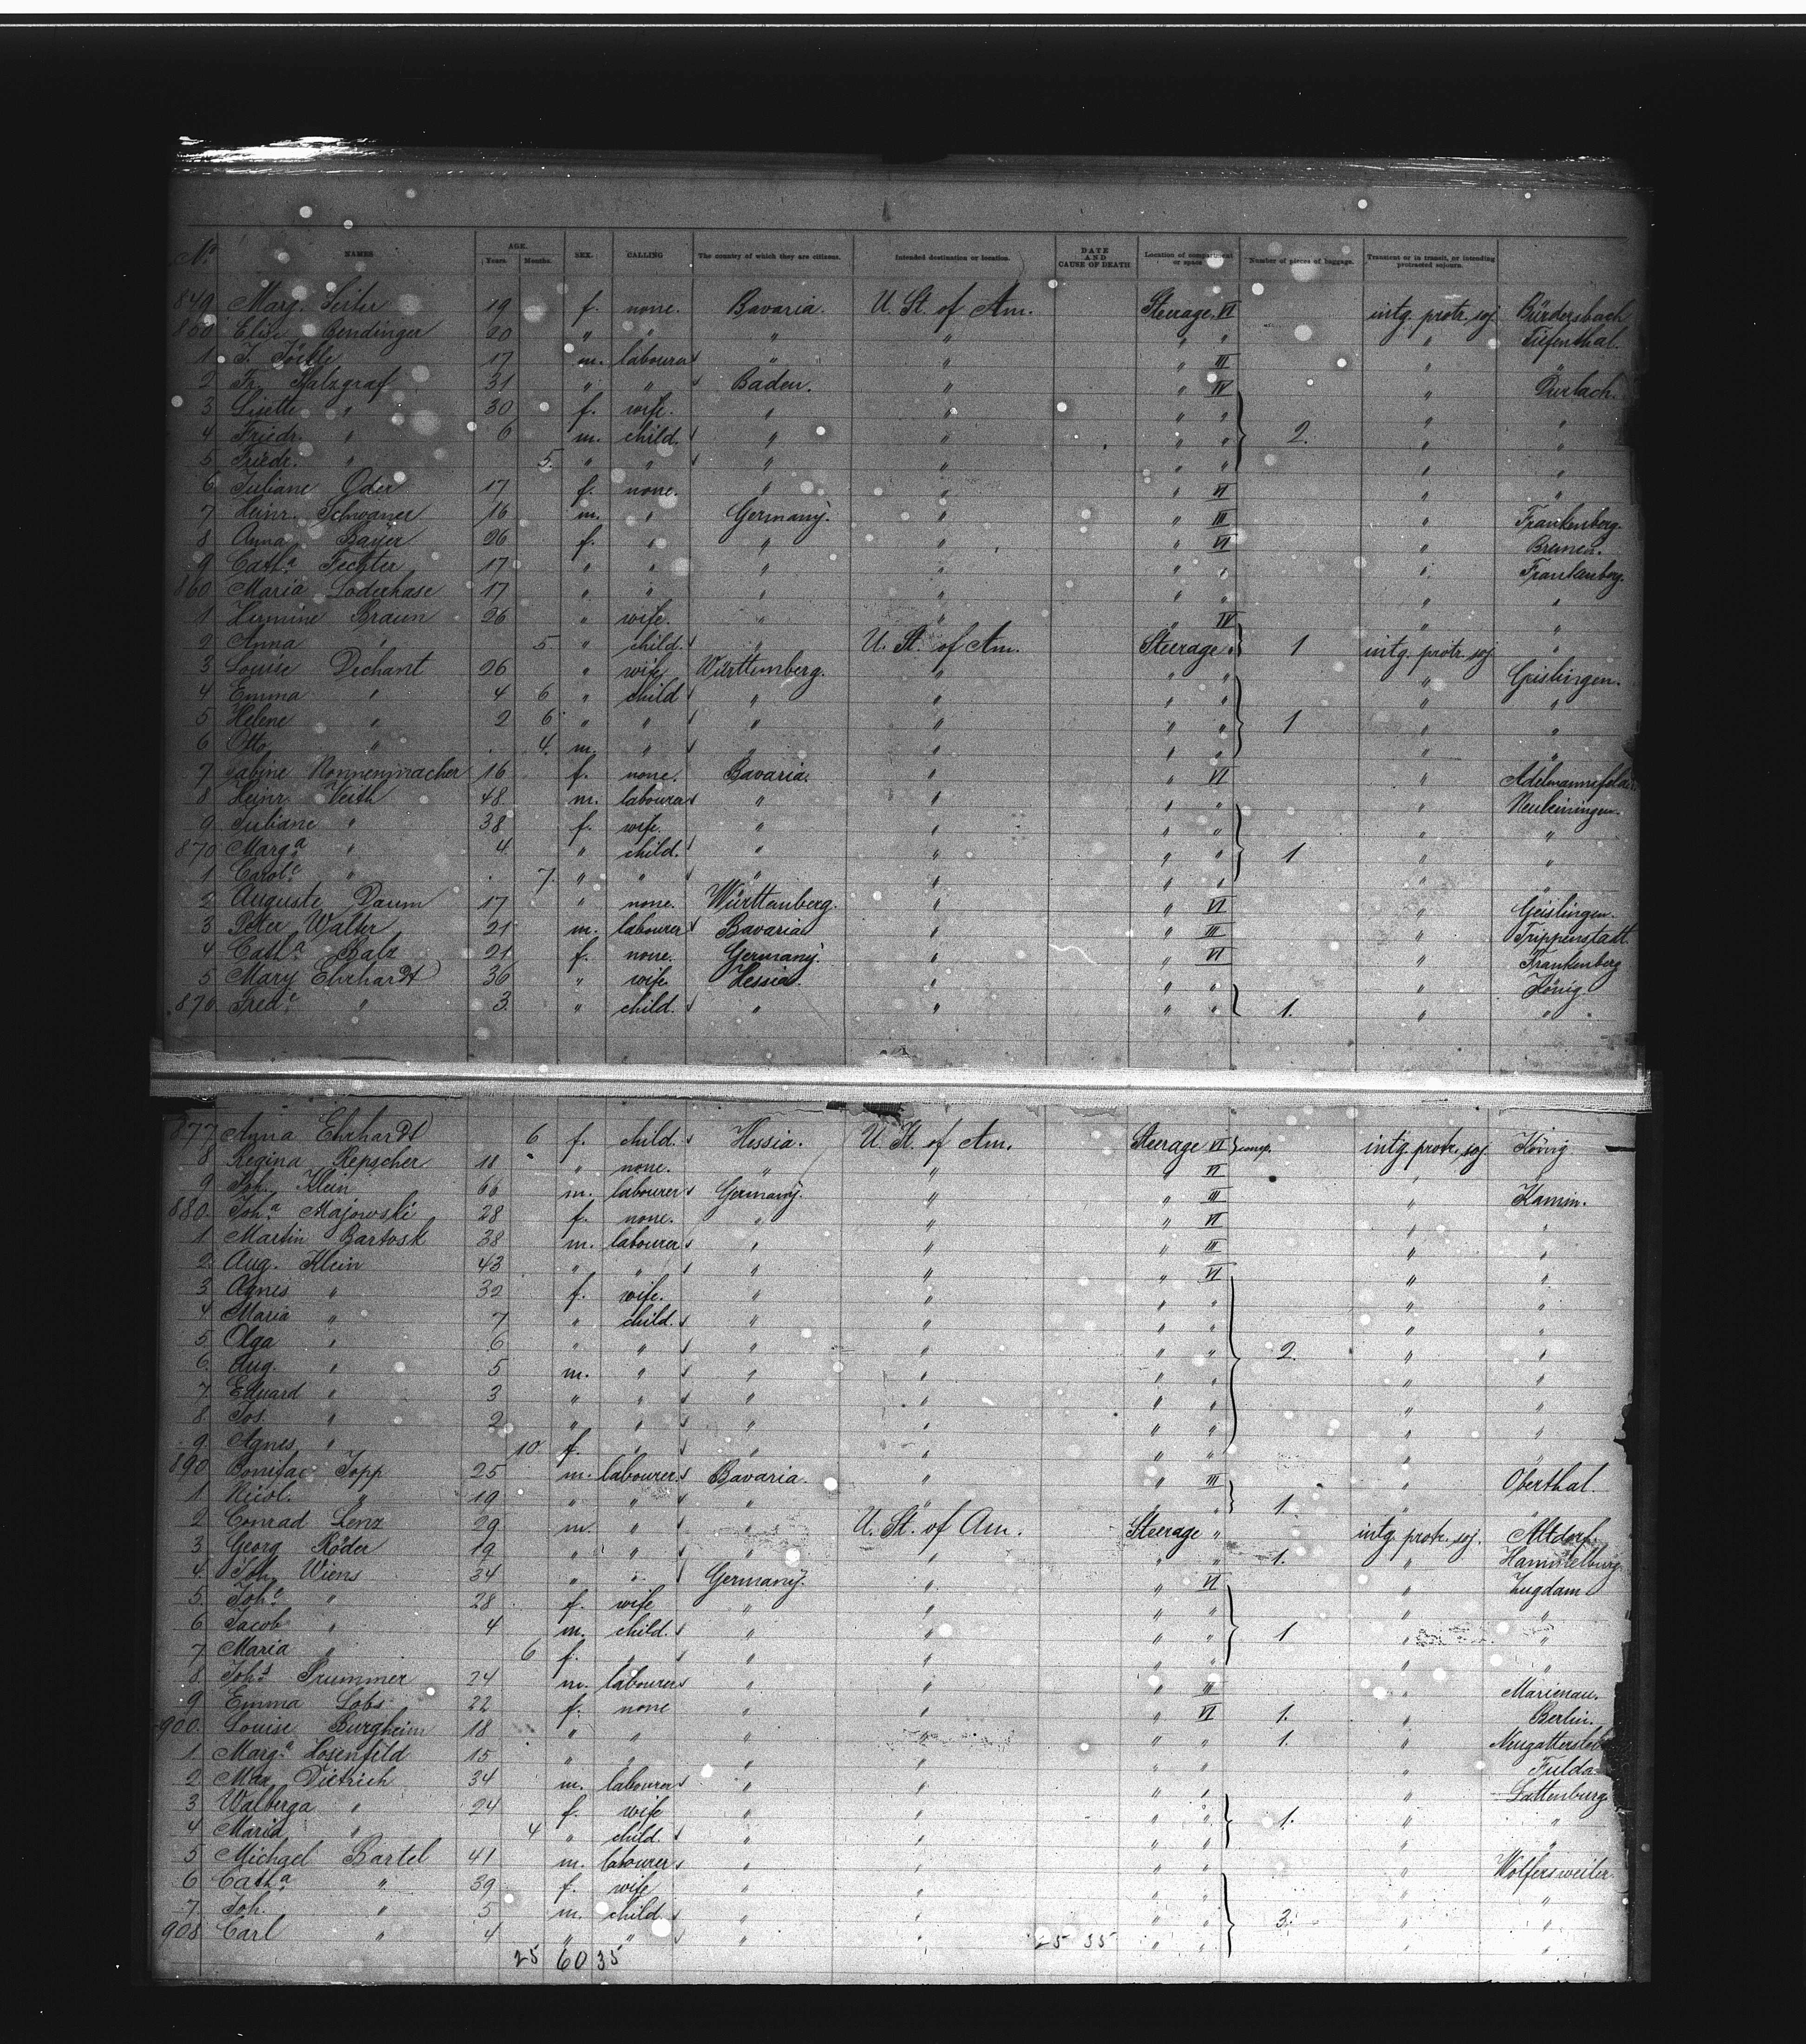 No. NAMES AGE. Years. Months. SEX. CALLING The country of which they are citizens. Intended destination or location. DATE AND CAUSE OF DEATH Location of compartment or space Number of pieces of baggage. Transient or in transit, or intending protracted sojourn.
849 Marg. Seiter 19 f. none. Bavaria. U. St. of Am. Steerage VI intg. protr. soj. Bürdersbach
850 Elise Gendinger 20 " " " " " " " Tiefenthal.
1 F. 17 m. labourer " " " III " "
2 Fr. Pfalzgraf 31 " " Baden. " " IV " Durlach.
3 Lisette " 30 f. wife. " " " " " "
4 Friedr. " 6 m. child. " " " " 2. " "
5 Friedr. " 5. " " " " " " " "
6 Juliane Oder 17 f. none. " " " VI " "
7 Heinr. Schwaner 16 m. " Germany. " " III " Frankenberg.
8 Anna Bayer 26 f. " " " " VI " Bremen.
9 Catha. Fechter 17 " " " " " " " Frankenberg.
860 Maria Soderhase 17 " " " " " " " "
1 Hermine Braun 26 " wife. " " " IV " "
2 Anna " 5 " child. " U. St. of Am. Steerage " 1 intg. protr. soj "
3 Louise Dechant 26 " wife Württemberg. " " " " Geislingen.
4 Emma " 4 6 " child " " " " " "
5 Helene " 2 6 " " " " " " 1 " "
6 Otto " . 4. m. " " " " " " "
7 Sabine Nonnenmacher 16 f. none. Bavaria. " " VI " Adelmannsfelden
8 Heinr. Veith 48 m. labourer " " " " " Neuleiningen.
9 Juliane " 38 f. wife. " " " " " "
870 Marga. " 4. " child. " " " " 1 " "
1 Carole. " . 7. " " " " " " " "
2 Auguste Daum 17 " none. Württemberg. " " VI " Geislingen.
3 Peter Walter 21 m. labourer Bavaria " " III " Trippenstatt.
4 Catha. Balz 21 f. none. Germany. " " VI " Frankenberg
5 Mary Ehrhardt 36 " wife Hessia. " " " " König.
876 Fred. " 3. " child. " " " " 1. " "
877 Anna Ehrhardt 6 f. child. Hessia. U. St. of Am. Steerage VI comp. intg. protr. soj. König
8 Regina Repscher 18 " none. " " " VI " "
9 Joh. Klein 66 m. labourer Germany. " " III " Kamin.
880. Joha. Majowski 28 f. none. " " " VI " "
1 Martin Bartosk 38 m. labourer " " " III " "
2. Aug. Klein 43 " " " " " VI " "
3 Agnes " 32 f. wife. " " " " " "
4 Maria " 7 " child. " " " " " "
5. Olga " 6 " " " " " " 2. " "
6. Aug. " 5 m. " " " " " " "
7. Eduard " 3 " " " " " " " "
8. Jos. " 2 " " " " " " " "
9. Agnes " 10. f. " " " " " " "
890 Bonifac Topp 25 m. labourer. Bavaria. " " III " Oberthal.
1. Nicol. " 19 " " " " " " 1. " "
2 Conrad Lenz 29 m. " " U. St. of Am. Steerage " intg. protr. soj. Altdorf.
3 Georg Röder 19 " " " " " " 1. " Hammelburg.
4. Joh. Wiens 34 " " Germany. " " VI " Zugdam
5. Joha. " 28 f. wife " " " " " "
6 Jacob " 4 m. child. " " " " 1 " "
7 Maria " 6 f. " " " " " " "
8 Johs. Trummer 24 m. labourer " " " III " Marienau.
9 Emma Lobs 22 f. none " " " VI 1. " Berlin.
900. Louise Burgheim 18 " " " " " " 1. "
1. Marga. Hosenfeld 15 " " " " " " " Fulda
2 Max Dietrich 34 m. labourer " " " " "
3 Walberga " 24 f. wife " " " " 1. " "
4 Maria " 4 " child. " " " " " "
5 Michael Bartel 41 m. labourer " " " " " Wolfersweiler.
6 Catha. " 39 f. wife " " " " " "
7. Joh. " 5 m. child. " " " " 3. " "
908 Carl " 4 " " " " " " " "
25 60 35 25 35